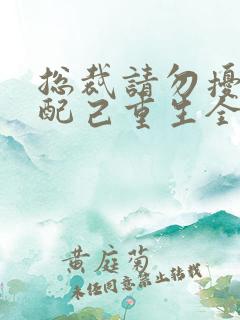 总裁請勿擾
配已重生全
黄庭菊
未经同意禁止转载